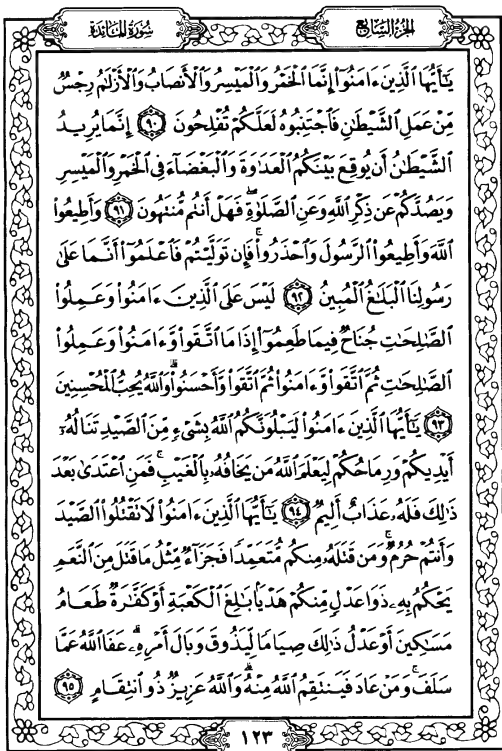 سُورَةُ المَائدة
الجُزءُ السَّابِع
يَٰٓأَيُّهَا ٱلَّذِينَ ءَامَنُوٓا۟ إِنَّمَا ٱلْخَمْرُ وَٱلْمَيْسِرُ وَٱلْأَنصَابُ وَٱلْأَزْلَٰمُ رِجْسٌ
مِّنْ عَمَلِ ٱلشَّيْطَٰنِ فَٱجْتَنِبُوهُ لَعَلَّكُمْ تُفْلِحُونَ ٩٠ إِنَّمَا يُرِيدُ
ٱلشَّيْطَٰنُ أَن يُوقِعَ بَيْنَكُمُ ٱلْعَدَٰوَةَ وَٱلْبَغْضَآءَ فِى ٱلْخَمْرِ وَٱلْمَيْسِرِ
وَيَصُدَّكُمْ عَن ذِكْرِ ٱللَّهِ وَعَنِ ٱلصَّلَوٰةِ ۖ فَهَلْ أَنتُم مُّنتَهُونَ ٩١ وَأَطِيعُوا۟
ٱللَّهَ وَأَطِيعُوا۟ ٱلرَّسُولَ وَٱحْذَرُوا۟ ۚ فَإِن تَوَلَّيْتُمْ فَٱعْلَمُوٓا۟ أَنَّمَا عَلَىٰ
رَسُولِنَا ٱلْبَلَٰغُ ٱلْمُبِينُ ٩٢ لَيْسَ عَلَى ٱلَّذِينَ ءَامَنُوا۟ وَعَمِلُوا۟
ٱلصَّٰلِحَٰتِ جُنَاحٌ فِيمَا طَعِمُوٓا۟ إِذَا مَا ٱتَّقَوا۟ وَّءَامَنُوا۟ وَعَمِلُوا۟
ٱلصَّٰلِحَٰتِ ثُمَّ ٱتَّقَوا۟ وَّءَامَنُوا۟ ثُمَّ ٱتَّقَوا۟ وَّأَحْسَنُوا۟ ۗ وَٱللَّهُ يُحِبُّ ٱلْمُحْسِنِينَ
٩٣ يَٰٓأَيُّهَا ٱلَّذِينَ ءَامَنُوا۟ لَيَبْلُوَنَّكُمُ ٱللَّهُ بِشَىْءٍ مِّنَ ٱلصَّيْدِ تَنَالُهُۥٓ
أَيْدِيكُمْ وَرِمَاحُكُمْ لِيَعْلَمَ ٱللَّهُ مَن يَخَافُهُۥ بِٱلْغَيْبِ ۚ فَمَنِ ٱعْتَدَىٰ بَعْدَ
ذَٰلِكَ فَلَهُۥ عَذَابٌ أَلِيمٌ ٩٤ يَٰٓأَيُّهَا ٱلَّذِينَ ءَامَنُوا۟ لَا تَقْتُلُوا۟ ٱلصَّيْدَ
وَأَنتُمْ حُرُمٌ ۚ وَمَن قَتَلَهُۥ مِنكُم مُّتَعَمِّدًا فَجَزَآءٌ مِّثْلُ مَا قَتَلَ مِنَ ٱلنَّعَمِ
يَحْكُمُ بِهِۦ ذَوَا عَدْلٍ مِّنكُمْ هَدْيًۢا بَٰلِغَ ٱلْكَعْبَةِ أَوْ كَفَّٰرَةٌ طَعَامُ
مَسَٰكِينَ أَوْ عَدْلُ ذَٰلِكَ صِيَامًا لِّيَذُوقَ وَبَالَ أَمْرِهِۦ ۗ عَفَا ٱللَّهُ عَمَّا
سَلَفَ ۚ وَمَنْ عَادَ فَيَنتَقِمُ ٱللَّهُ مِنْهُ ۗ وَٱللَّهُ عَزِيزٌ ذُو ٱنتِقَامٍ ٩٥
١٢٣